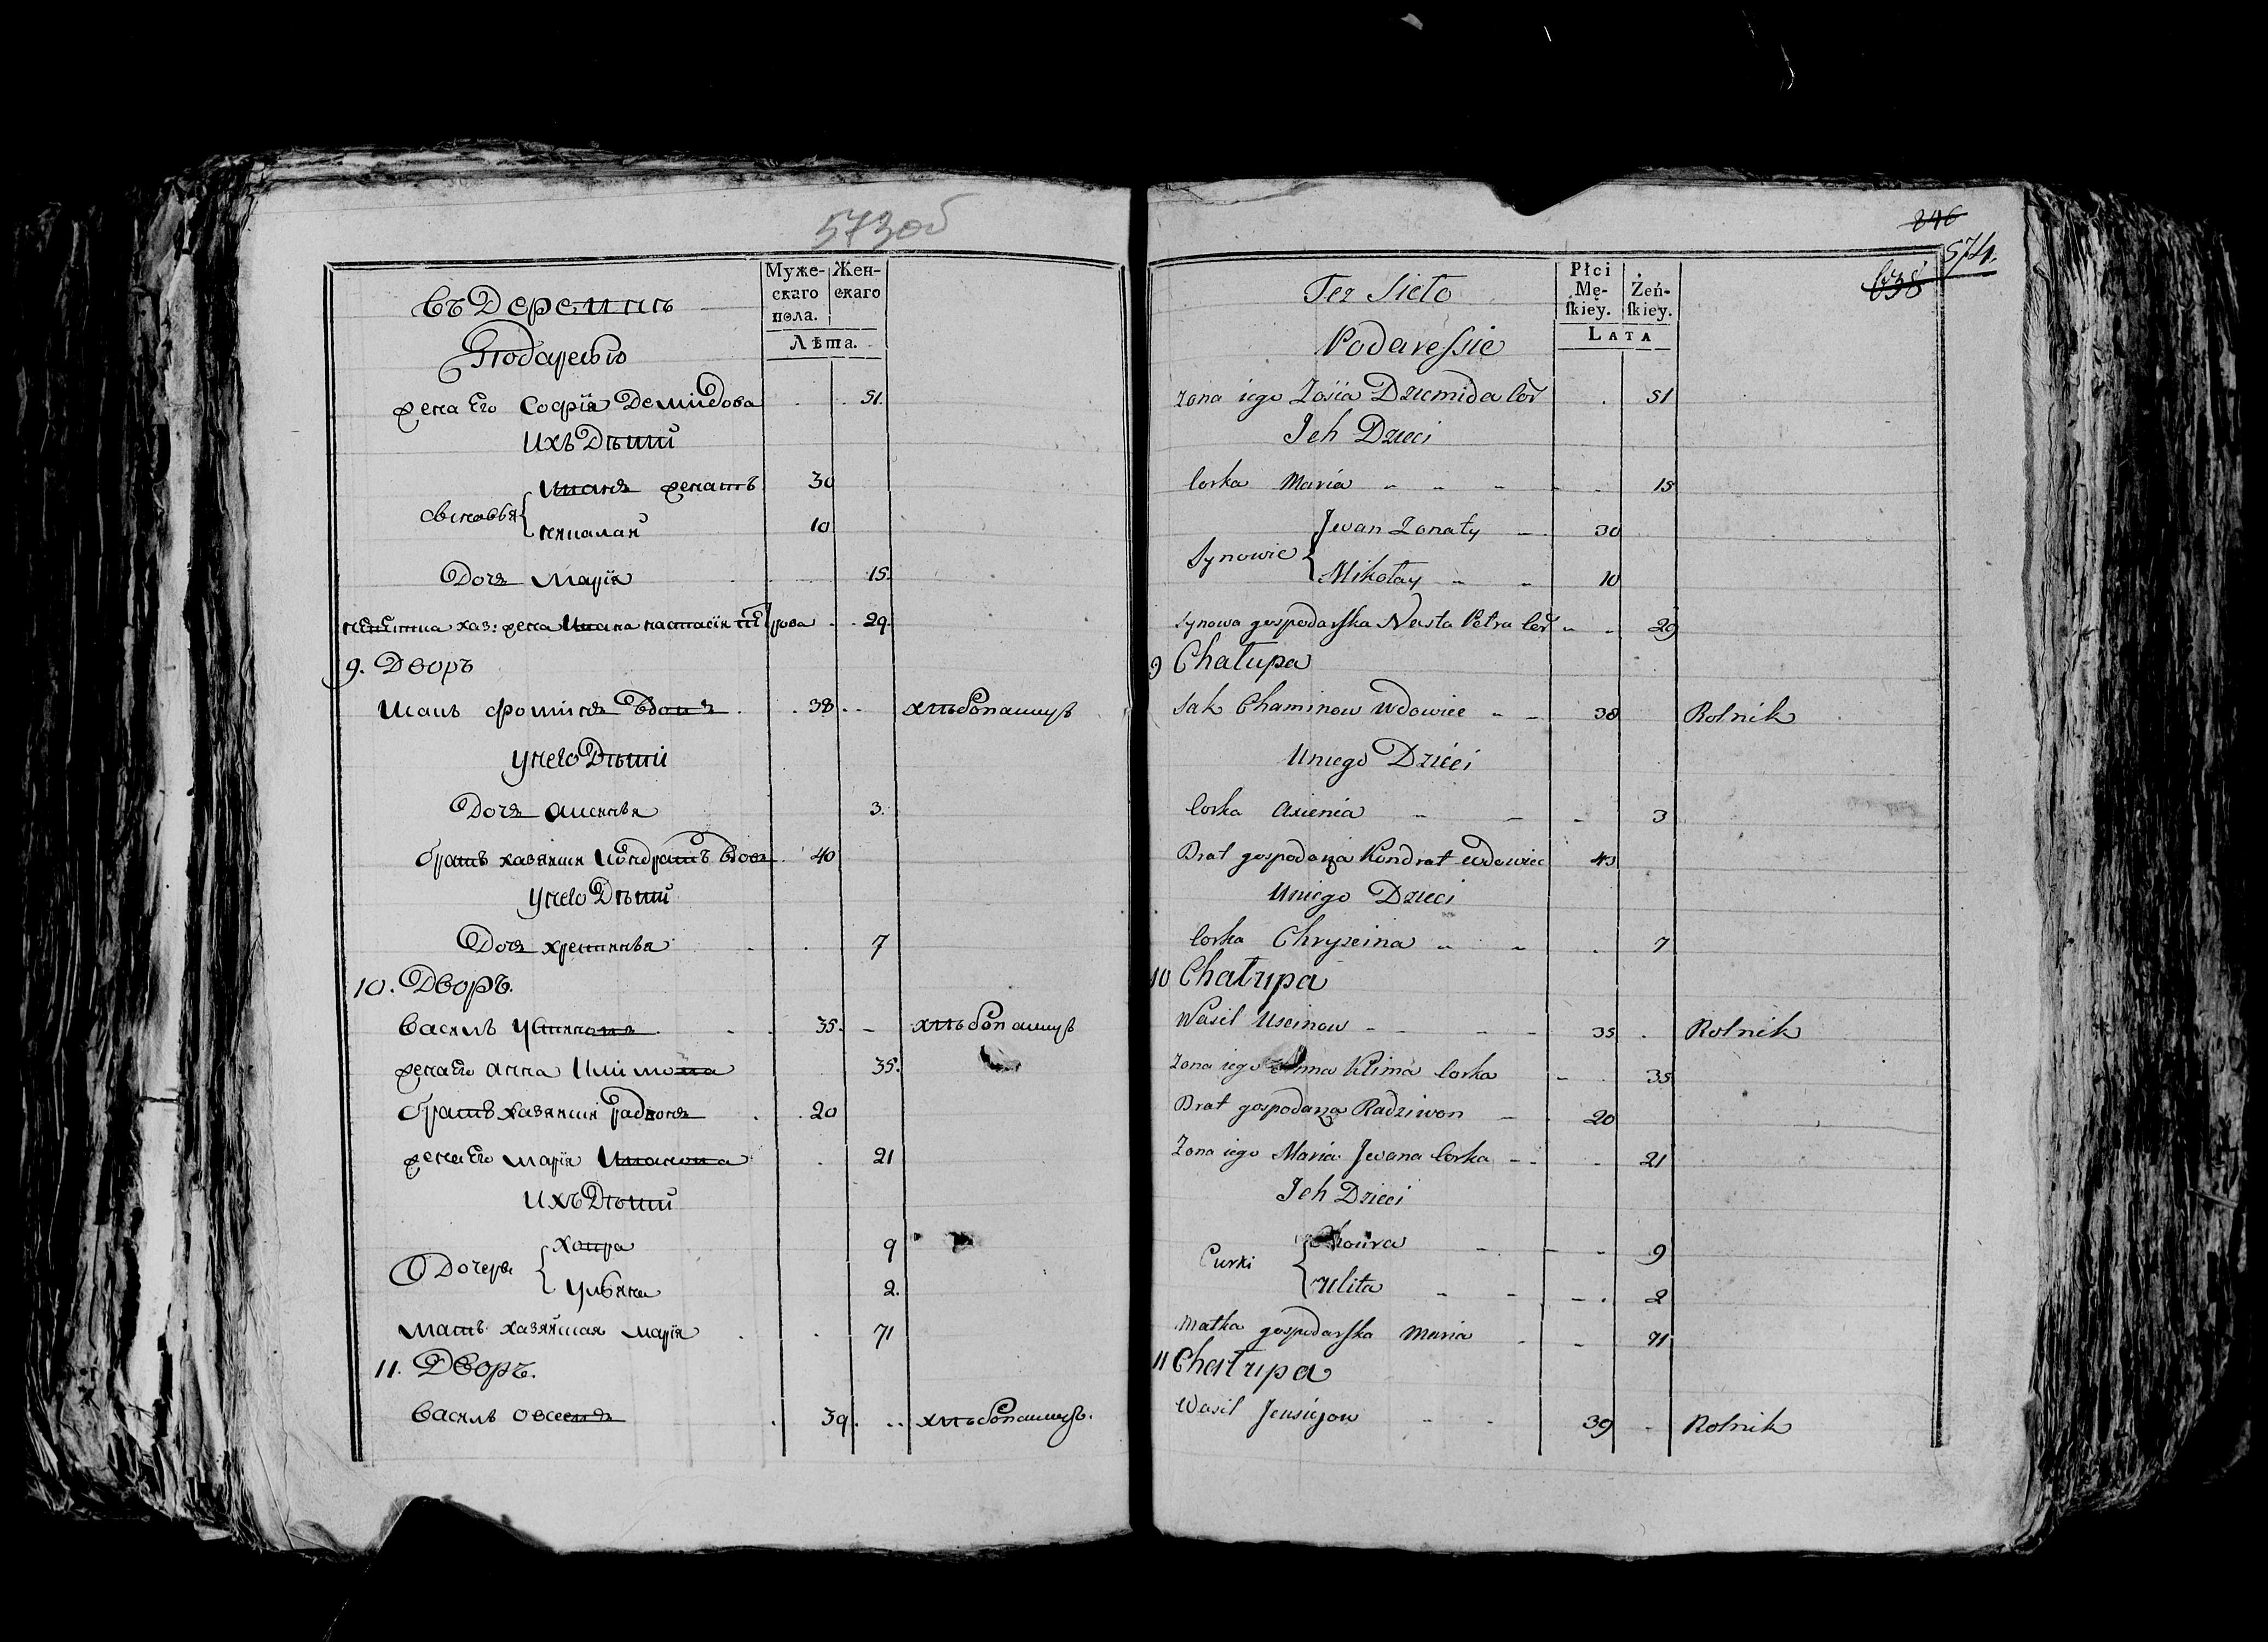 573об
Муже-
скаго
пола.
Жен-
скаго
Лѣта.
Въ Деревнѣ
Подаресью
жена Его Софія Демидова 51.
ИхЪ Дѣти
сыновья Иванъ женатъ 30
николай 10
Дочь Марія 15.
невѣстка хаз: жена Ивана настасія Пѣтрова 29.
9. Дворъ
Исакъ фоминъ Вдовъ 38 хлѣбопашцъ
У него Дѣти
Дочь Аксинья 3.
братъ хазяина Кондратъ Вдовъ 40
У него Дѣти
Дочь христинья 7
10. Дворъ.
Василь Устиновъ 35. хлѣбопашцъ
жена Его анна Климова 35.
братъ хазяина Радионъ 20
жена Его марія Иванова 21
ИхЪ Дѣти
Дочери Ховра 9
Ульяна 2.
мать хазяйская марія 71
11. Дворъ.
Василь овсеевъ 39. хлѣбопашцъ.
246
638
574.
Płci
Mę-
ſkiey.
Żeń-
ſkiey.
LATA
Tez Sieło
Podareſsie
zona iego Zosia Dziemida Cor 51
Jch Dzieci
Corka Maria 15
Synowie Jwan Zonaty 30
Mikołay 10
Synowa gospodarſka Nasta Petra Cor 29
9 Chałupa
Sak Chaminow Wdowiec 38 Rolnik
Uniego Dzieci
Corka Axienia 3
Brat gospodarza Kondrat Wdowiec 40
Uniego Dzieci
Corka Chryscina 7
10 Chałupa
Wasil Uscinow 35 Rolnik
Zona iego Anna Klima Corka 35
Brat gospodarza Radziwon 20
Zona iego Maria Jwana Corka 21
Jch Dzieci
Curki Chowra 9
Ulita 2
Matka gospodarſka Maria 71
11 Chałupa
Wasil Jewsiejow 39 Rolnik